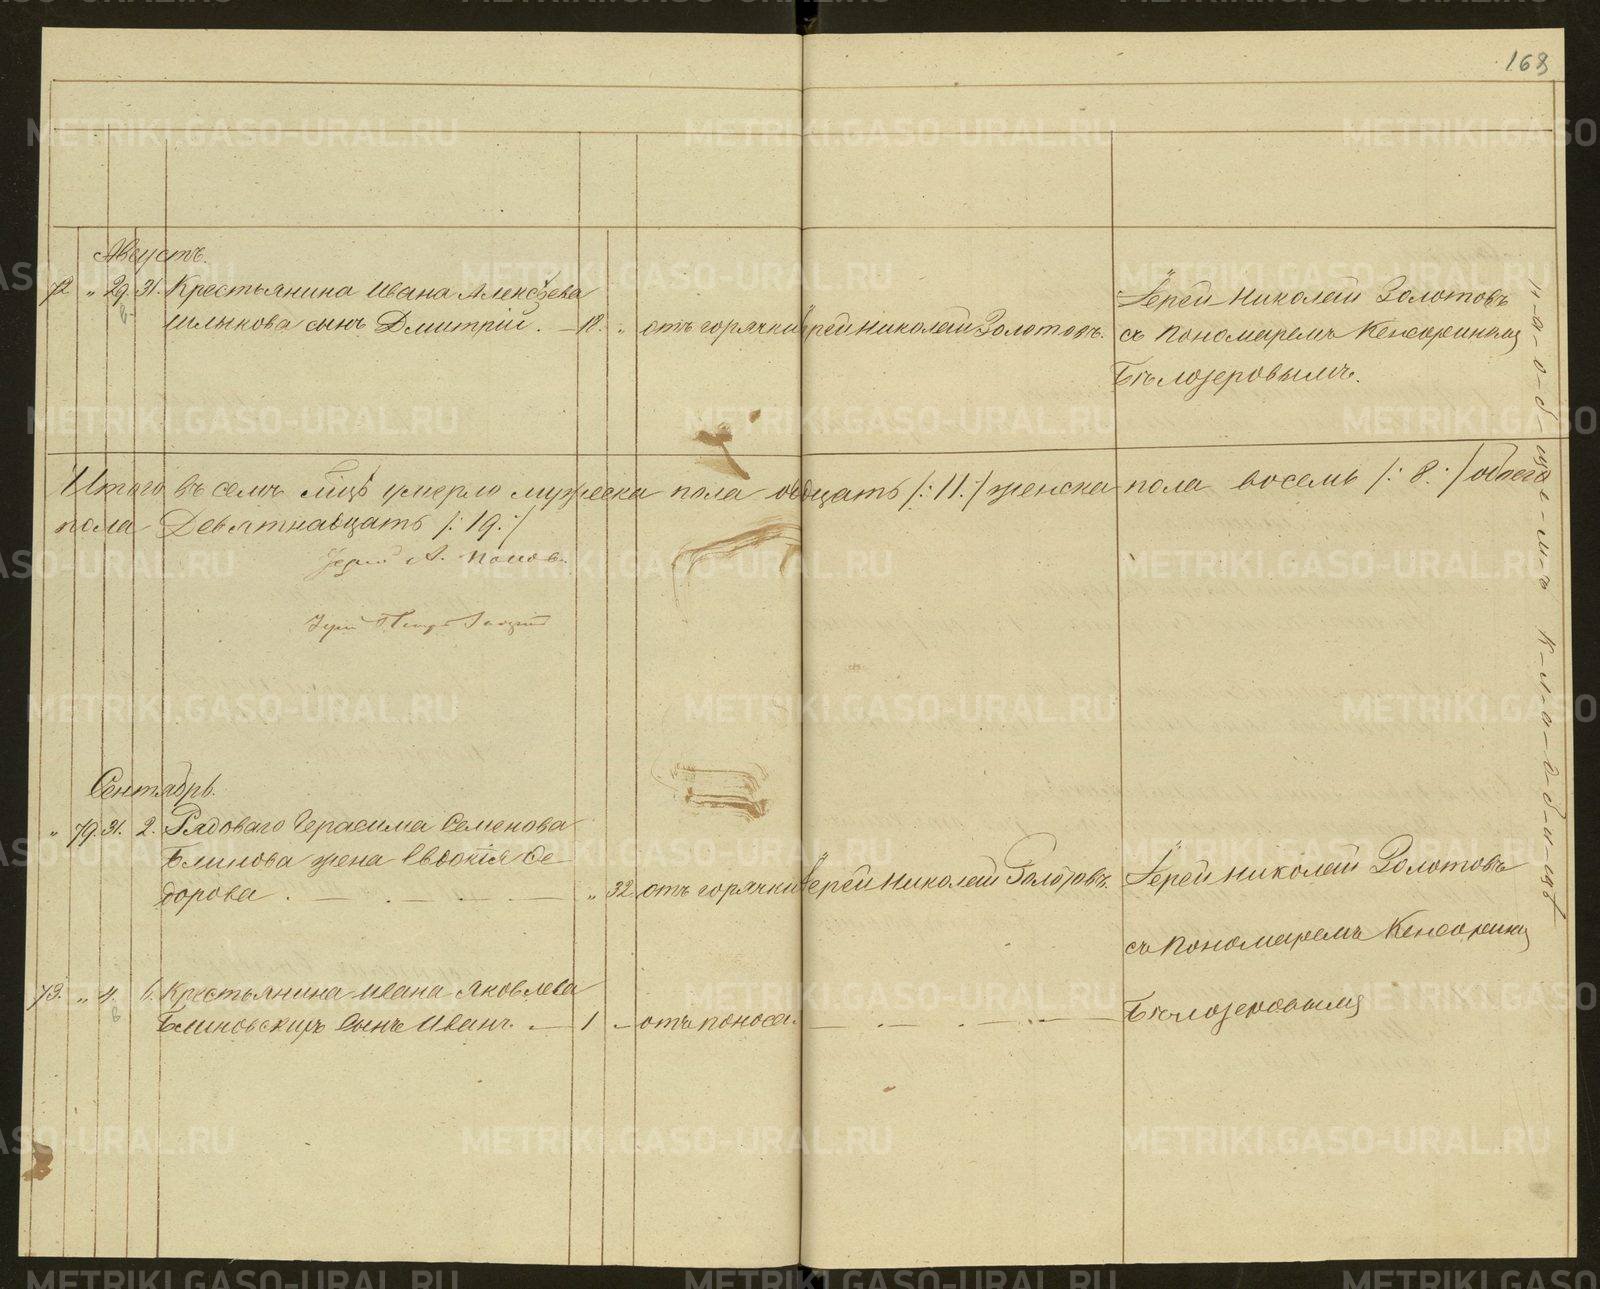 168
Августъ.
72 „ 29. 31. Крестьянина Ивана Алексѣева
Шлыкова сынъ Дмитрій. — 12. „ отъ горячки Іерей Николай Золотовъ.
Іерей Николай Золотовъ
съ пономаремъ Кенсориномъ
Бѣлозеровымъ.
Итого въ семъ м͠цѣ умерло мужеска пола одинцать /: 11. :/ женска пола восемь /: 8. :/ обоего
пола Девятнадцать /: 19. :/
Іерей А. Попов.
Іерей
Сентябрь.
„ 79. 31. 2. Рядоваго Герасима Семенова
Блинова жена Евдокія Ѳе-
дорова . — . — . — „ 32 отъ горячки Іерей Николай Золотовъ.
Іерей Николай Золотовъ
съ пономаремъ Кенсорином
Бѣлозеровымъ
73. „ 4. 6. Крестьянина Ивана Яковлева
Блиновскихъ сынъ Иванъ. — 1 — отъ поноса. — . — . — . —
н-а-о-б-щ-е-м-ъ к-л-а-д-б-и-щѣ
METRIKI.GASO-URAL.RU